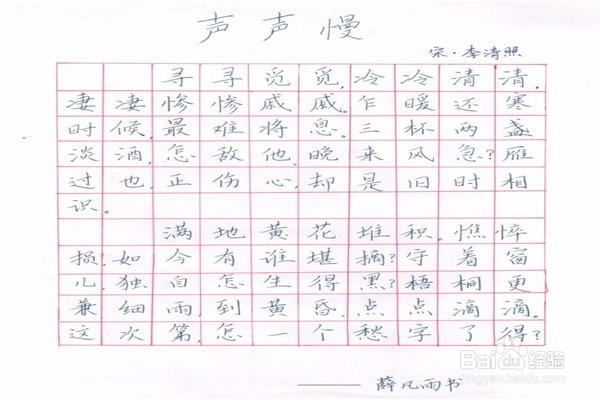 声声慢
宋·李清照
寻寻觅觅,冷冷清清,
凄凄惨惨戚戚。乍暖还寒
时候,最难将息。三杯两盏
淡酒,怎敌他,晚来风急?雁
过也,正伤心,却是旧时相
识。
满地黄花堆积。憔悴
损,如今有谁堪摘?守着窗
儿,独自怎生得黑?梧桐更
兼细雨,到黄昏,点点滴滴。
这次第,怎一个愁字了得?
——薛凡雨书
Baidu经验
jingyan.baidu.com